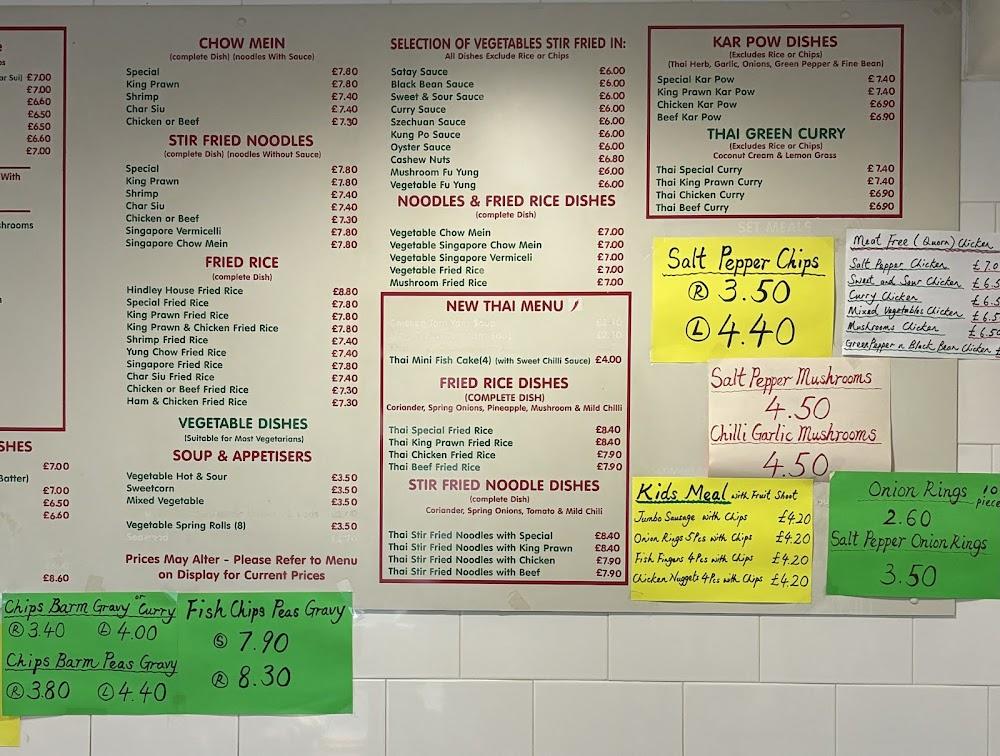 ar Sui) £7.00
£7.00
£6.60
£6.50
£6.50
£6.60
£7.00
With
shrooms
SHES
£7.00
Batter)
£7.00
£6.50
£6.60
£8.60
CHOW MEIN
(complete Dish) (noodles With Sauce)
Special £7.80
King Prawn £7.80
Shrimp £7.40
Char Siu £7.40
Chicken or Beef £7.30
STIR FRIED NOODLES
(complete Dish) (noodles Without Sauce)
Special £7.80
King Prawn £7.80
Shrimp £7.40
Char Siu £7.40
Chicken or Beef £7.30
Singapore Vermicelli £7.80
Singapore Chow Mein £7.80
FRIED RICE
(complete Dish)
Hindley House Fried Rice £8.80
Special Fried Rice £7.80
King Prawn Fried Rice £7.80
King Prawn & Chicken Fried Rice £7.80
Shrimp Fried Rice £7.40
Yung Chow Fried Rice £7.40
Singapore Fried Rice £7.80
Char Siu Fried Rice £7.40
Chicken or Beef Fried Rice £7.30
Ham & Chicken Fried Rice £7.30
VEGETABLE DISHES
(Suitable for Most Vegetarians)
SOUP & APPETISERS
Vegetable Hot & Sour £3.50
Sweetcorn £3.50
Mixed Vegetable £3.50
Vegetable Spring Rolls (8) £3.50
Prices May Alter - Please Refer to Menu
on Display for Current Prices
SELECTION OF VEGETABLES STIR FRIED IN:
All Dishes Exclude Rice or Chips
Satay Sauce £6.00
Black Bean Sauce £6.00
Sweet & Sour Sauce £6.00
Curry Sauce £6.00
Szechuan Sauce £6.00
Kung Po Sauce £6.00
Oyster Sauce £6.00
Cashew Nuts £6.80
Mushroom Fu Yung £6.00
Vegetable Fu Yung £6.00
NOODLES & FRIED RICE DISHES
(complete Dish)
Vegetable Chow Mein £7.00
Vegetable Singapore Chow Mein £7.00
Vegetable Singapore Vermiceli £7.00
Vegetable Fried Rice £7.00
Mushroom Fried Rice £7.00
NEW THAI MENU
Thai Mini Fish Cake(4) (with Sweet Chilli Sauce) £4.00
FRIED RICE DISHES
(COMPLETE DISH)
Coriander, Spring Onions, Pineapple, Mushroom & Mild Chilli
Thai Special Fried Rice £8.40
Thai King Prawn Fried Rice £8.40
Thai Chicken Fried Rice £7.90
Thai Beef Fried Rice £7.90
STIR FRIED NOODLE DISHES
(complete Dish)
Coriander, Spring Onions, Tomato & Mild Chili
Thai Stir Fried Noodles with Special £8.40
Thai Stir Fried Noodles with King Prawn £8.40
Thai Stir Fried Noodles with Chicken £7.90
Thai Stir Fried Noodles with Beef £7.90
KAR POW DISHES
(Excludes Rice or Chips)
(Thai Herb, Garlic, Onions, Green Pepper & Fine Bean)
Special Kar Pow £7.40
King Prawn Kar Pow £7.40
Chicken Kar Pow £6.90
Beef Kar Pow £6.90
THAI GREEN CURRY
(Excludes Rice or Chips)
Coconut Cream & Lemon Grass
Thai Special Curry £7.40
Thai King Prawn Curry £7.40
Thai Chicken Curry £6.90
Thai Beef Curry £6.90
SET MEALS
Salt Pepper Chips
R 3.50
L 4.40
Meat Free (Quorn) Chicken
Salt Pepper Chicken £7.0
Sweet and Sour Chicken £6.5
Curry Chicken £6.5
Mixed Vegetables Chicken £6.5
Mushrooms Chicken £6.50
Green Pepper n Black Bean Chicken £
Salt Pepper Mushrooms
4.50
Chilli Garlic Mushrooms
4.50
Kids Meal with Fruit Shoot
Jumbo Sausage with Chips £4.20
Onion Rings 5Pcs with Chips £4.20
Fish Fingers 4Pcs with Chips £4.20
Chicken Nuggets 4Pcs with Chips £4.20
Onion Rings 10 piece
2.60
Salt Pepper Onion Rings
3.50
Chips Barm Gravy or Curry
R 3.40 L 4.00
Chips Barm Peas Gravy
R 3.80 L 4.40
Fish Chips Peas Gravy
S 7.90
R 8.30